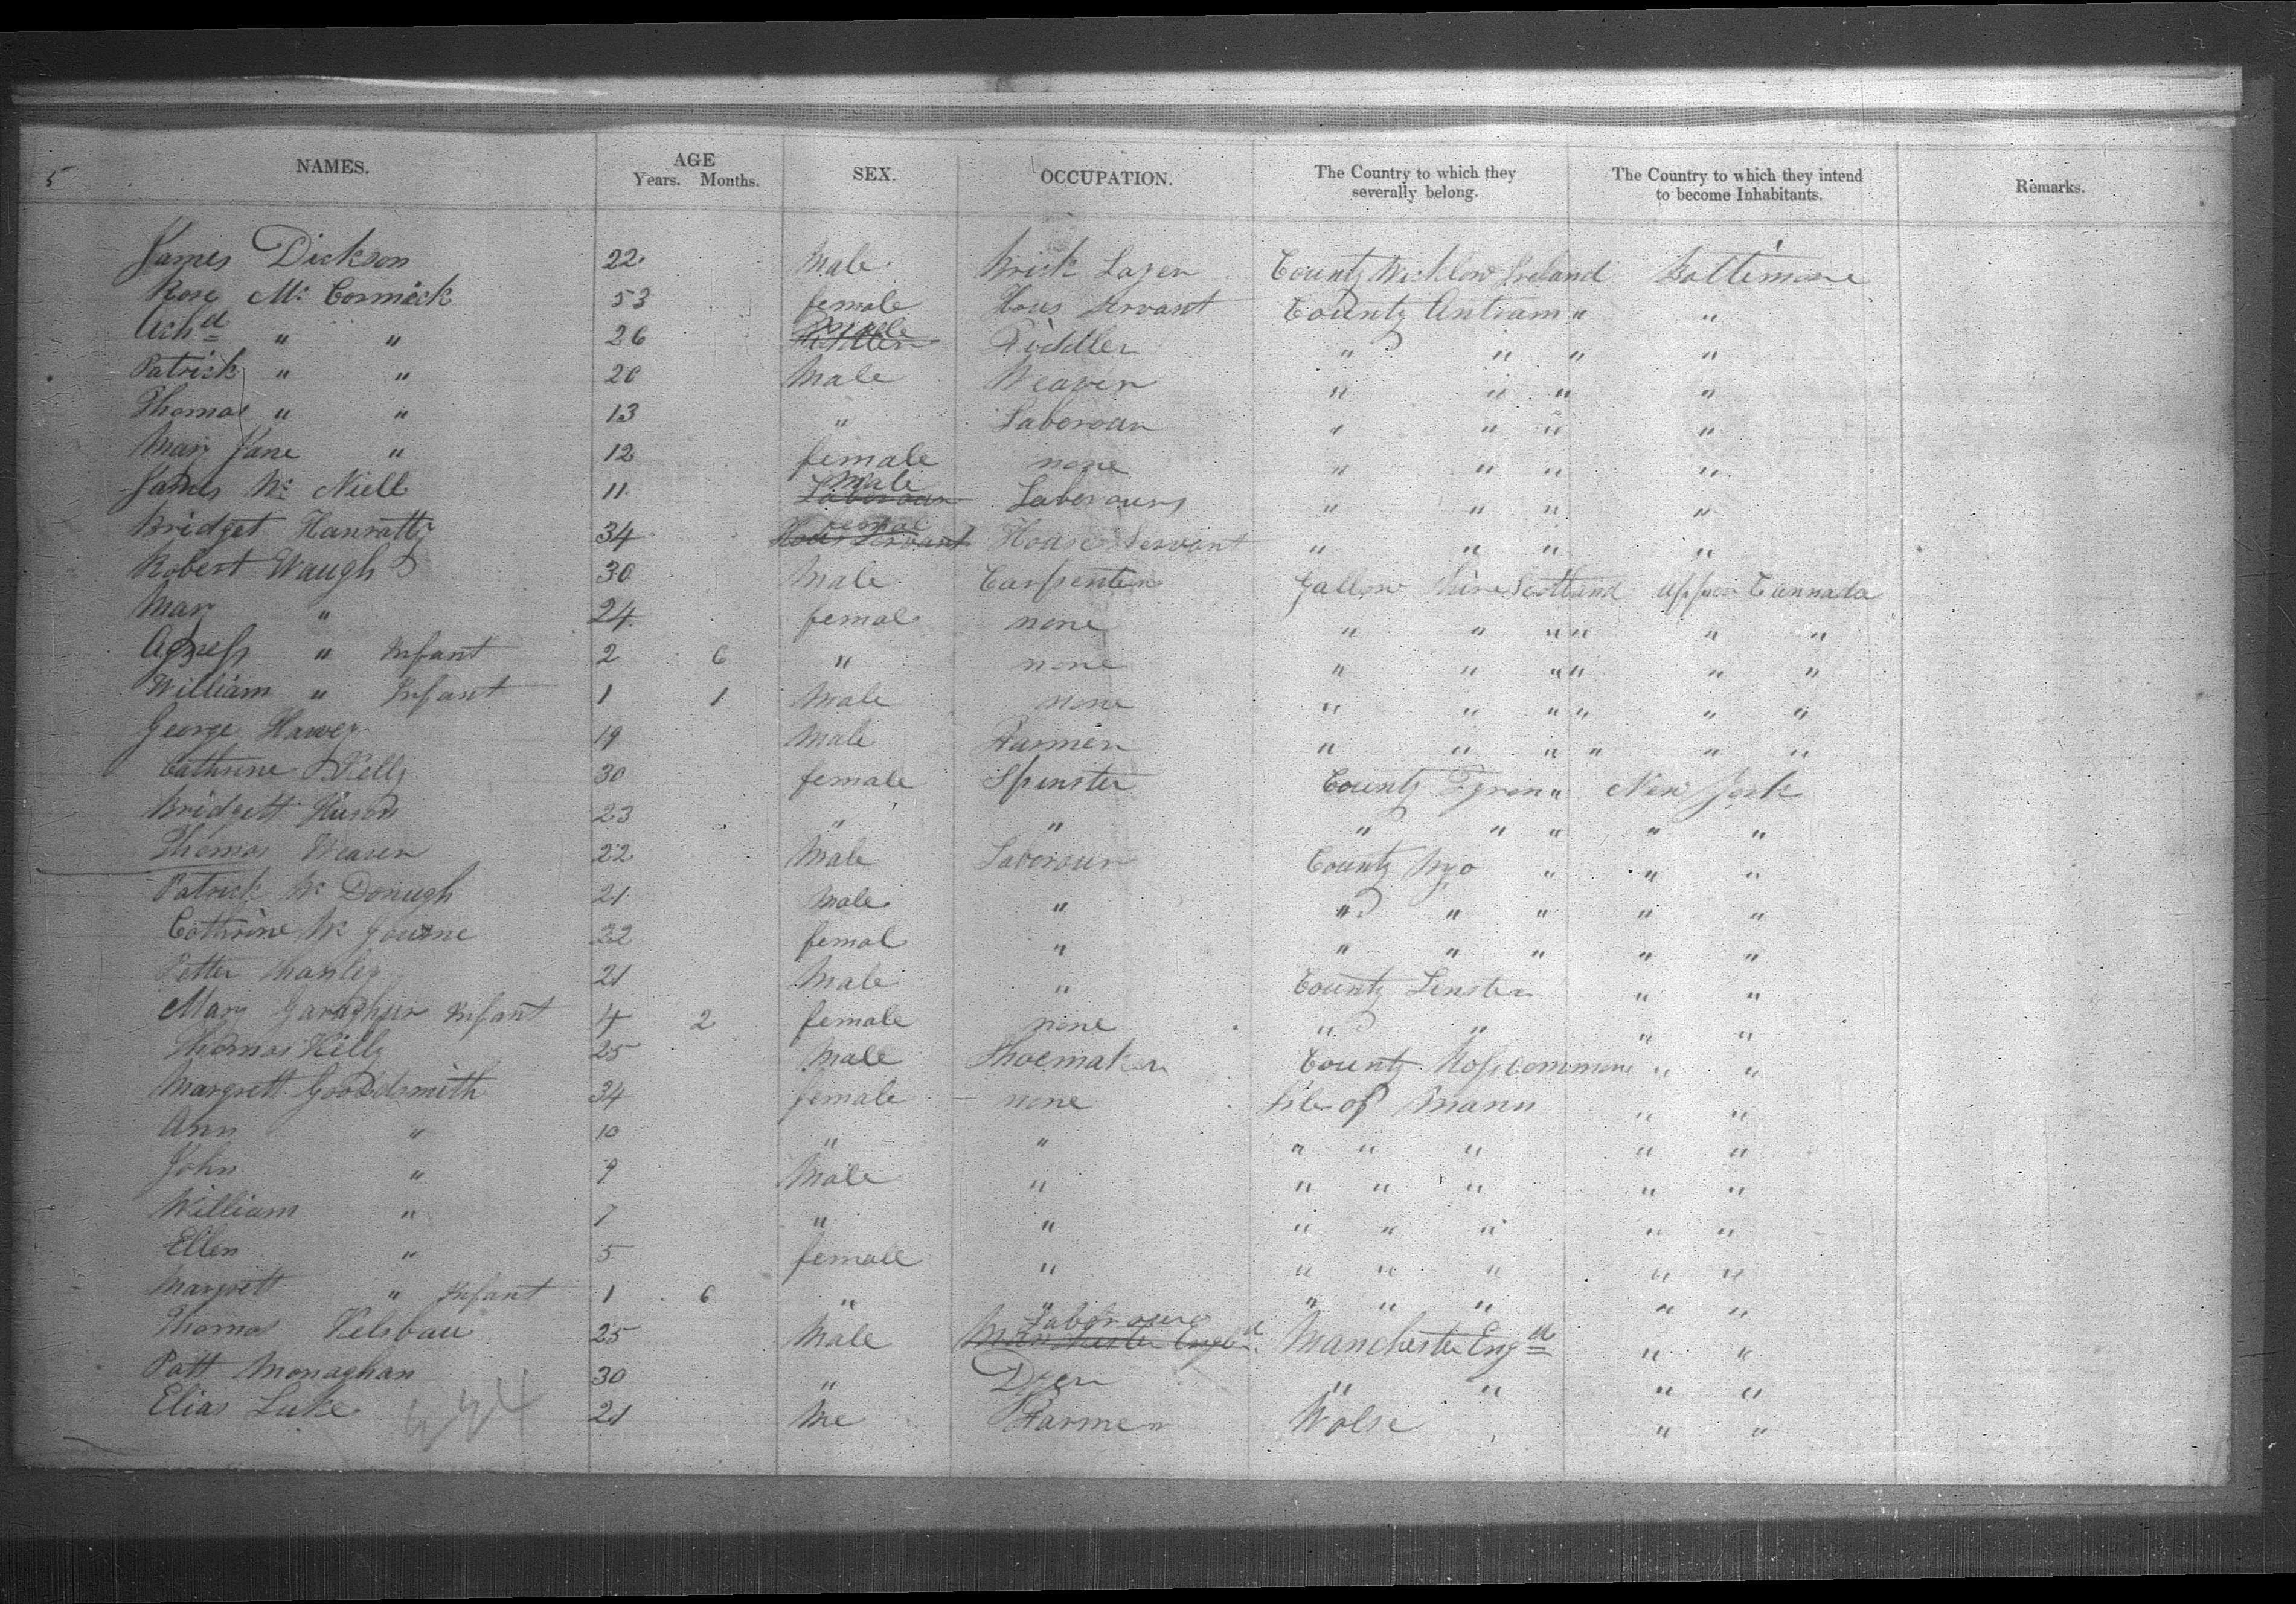 5
NAMES. AGE SEX. OCCUPATION. The Country to which they severally belong. The Country to which they intend to become Inhabitants. Remarks.
Years. Months.
James Dickson 22 Male Brick Layer County Wicklow Ireland Baltimore
Rose Mc Cormick 53 female Hous Servant County Antram " "
Achd " " 26 Male Fiddler " " " "
Patrick " " 20 Male Weaver " " " "
Thomas " " 13 " Laborour " " " "
Mary Jane " 12 female none " " " "
James Mc Niell 11 Male Laborours " " " "
Bridget Hanratty 34 femal House Servant " " " "
Robert Waugh 30 Male Carpenter Gallow Shire Scotland upper Cannada
Mary " 24 femal none " " " " " "
Agness " Infant 2 6 " none " " " " " "
William " Infant 1 1 Male none " " " " " "
George Harvey 19 Male Farmer " " " " " "
Cathrine Kelly 30 female Spinster County Tyron " New York
Bridgett 23 " " " " " " "
Thomas Weaver 22 Male Laborour County Myo " " "
Patrick Mc Donugh 21 Male " " " " " "
Cathrine Mc 22 femal " " " " " "
Petter 21 Male " County Linster " "
Mary Infant 4 2 female none " " " "
Thomas Killy 25 Male Shoemaker County Rosscommon " "
Margrett Gooddsmith 34 female none Isle of Mann " "
Ann " 10 " " " " " " "
John " 9 Male " " " " " "
William " 7 " " " " " " "
Ellen " 5 female " " " " " "
Margrett " Infant 1 6 " " " " " " "
Thomas 25 Male Laborour Manchester Engd " "
Patt Monaghan 30 " Dyer " " " "
Elias Luke 21 Me Farmer Walse " "